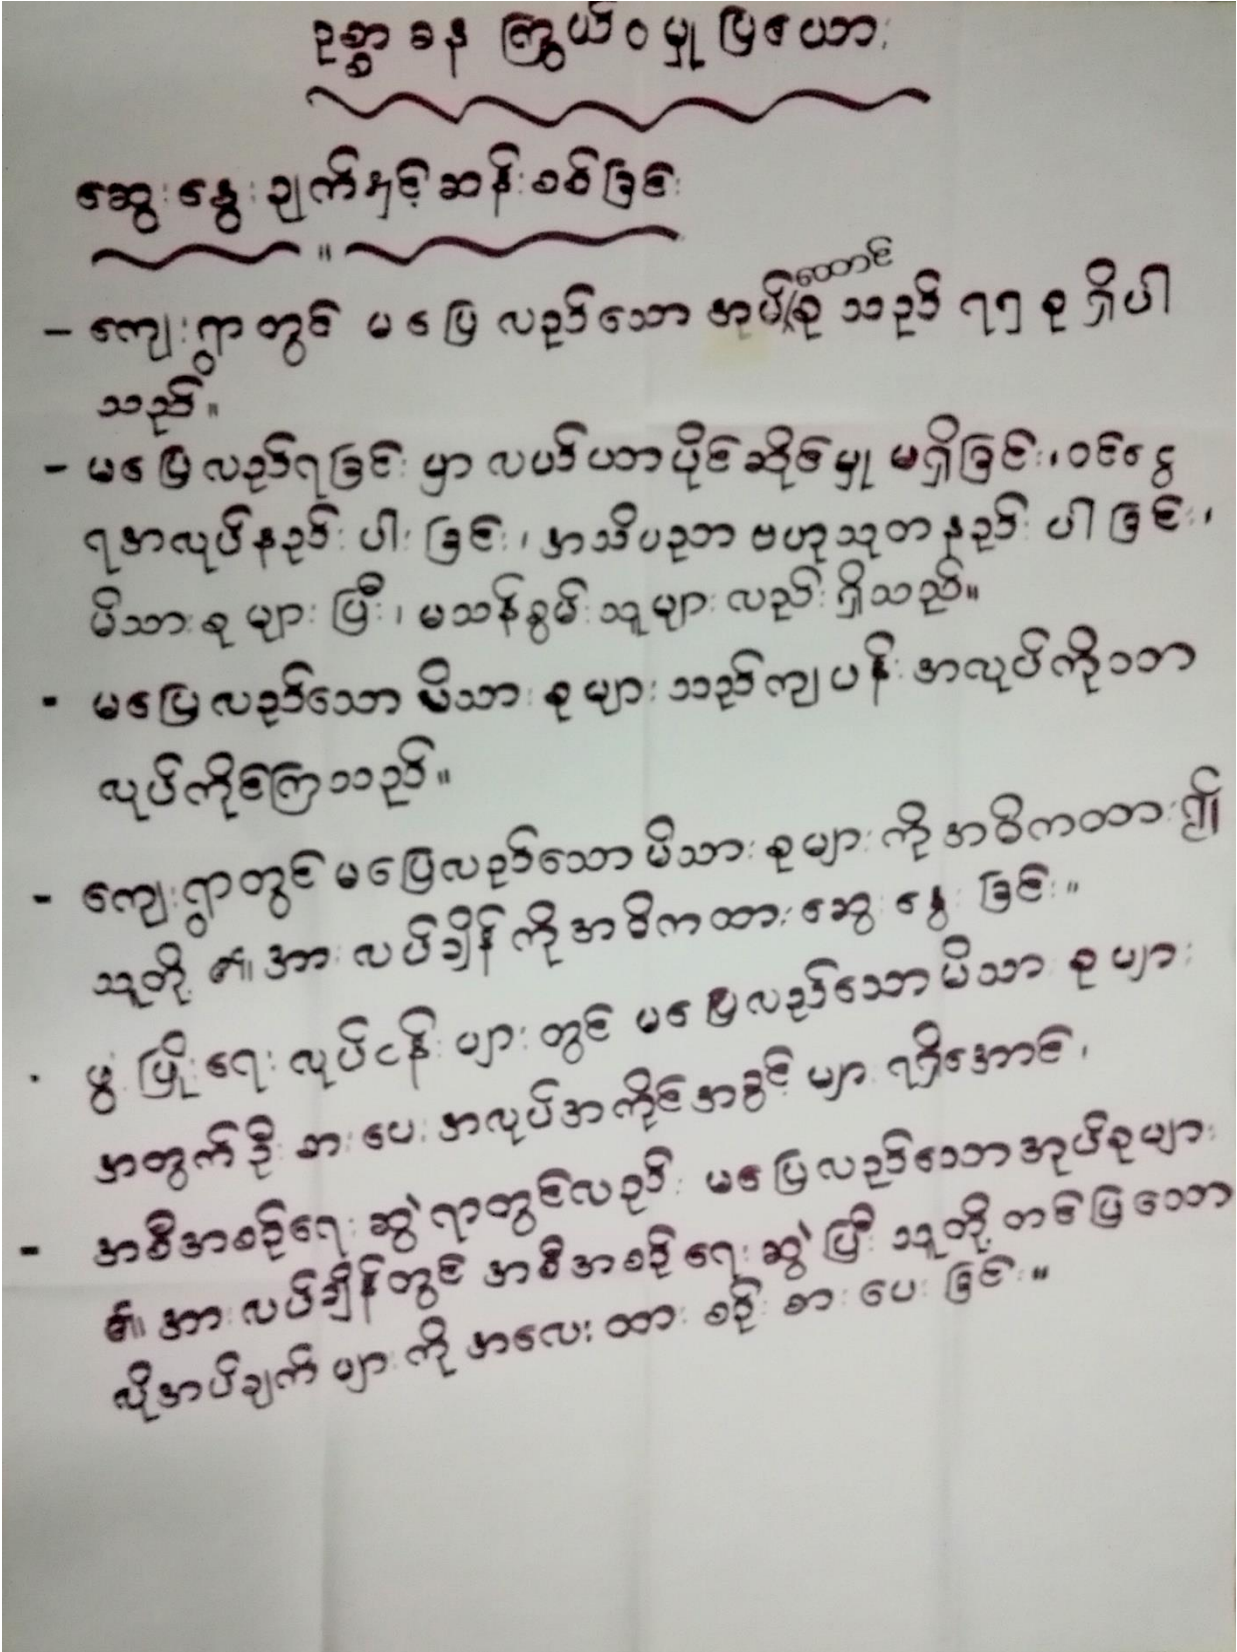 ဥစ္စာခန ကြွယ်ဝမှုပြယော:
ဆွေးနွေးချက်နှင့်ဆန်းစစ်ခြင်း
။
- ကျေးရွာတွင် မပြေလည်သော အုပ်(စု ထောင် သည် ၇၅ စု ရှိပါ
သည်။
- မပြေလည်ရခြင်းမှာ လယ်ယာပိုင်ဆိုင်မှု မရှိခြင်း၊ ဝင်ငွေ
ရအလုပ်နည်းပါးခြင်း၊ အသိပညာဗဟုသုတနည်းပါခြင်း၊
မိသားစုများပြီး၊ မသန်စွမ်းသူများလည်းရှိသည်။
- မပြေလည်သော မိသားစုများသည်ကျပန်းအလုပ်ကိုသာ
လုပ်ကိုင်ကြသည်။
- ကျေးရွာတွင်မပြေလည်သောမိသားစုများကိုအဓိကထား၍
သူတို့၏အားလပ်ချိန်ကိုအဓိကထားဆွေးနွေးခြင်း။
· ဖွံ့ဖြိုးရေးလုပ်ငန်းများတွင် မပြေလည်သောမိသားစုများ
အတွက်ဦးစားပေးအလုပ်အကိုင်အခွင့်များရရှိအောင်၊
- အစီအစဉ်ရေးဆွဲရာတွင်လည်း မပြေလည်သောအုပ်စုများ
၏အားလပ်ချိန်တွင် အစီအစဉ်ရေးဆွဲပြီး သူတို့တင်ပြသော
လိုအပ်ချက်များကို အလေးထားစဉ်းစားပေးခြင်း။